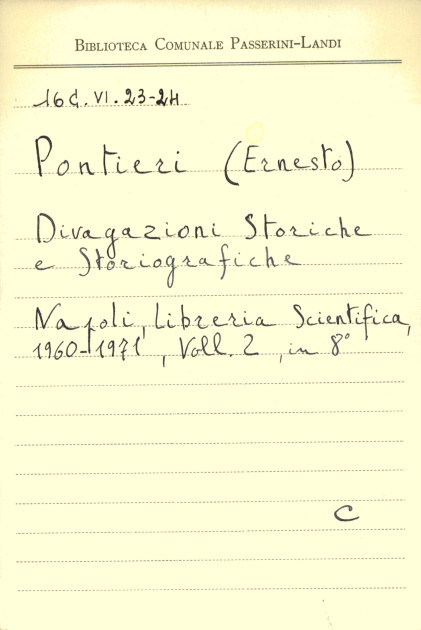 BIBLIOTECA COMUNALE PASSERINI-LANDI
16C.VI.23-24
Pontieri (Ernesto)
Divagazioni Storiche
e Storiografiche
Napoli, Libreria Scientifica,
1960-1971, Voll. 2, in 8°
C